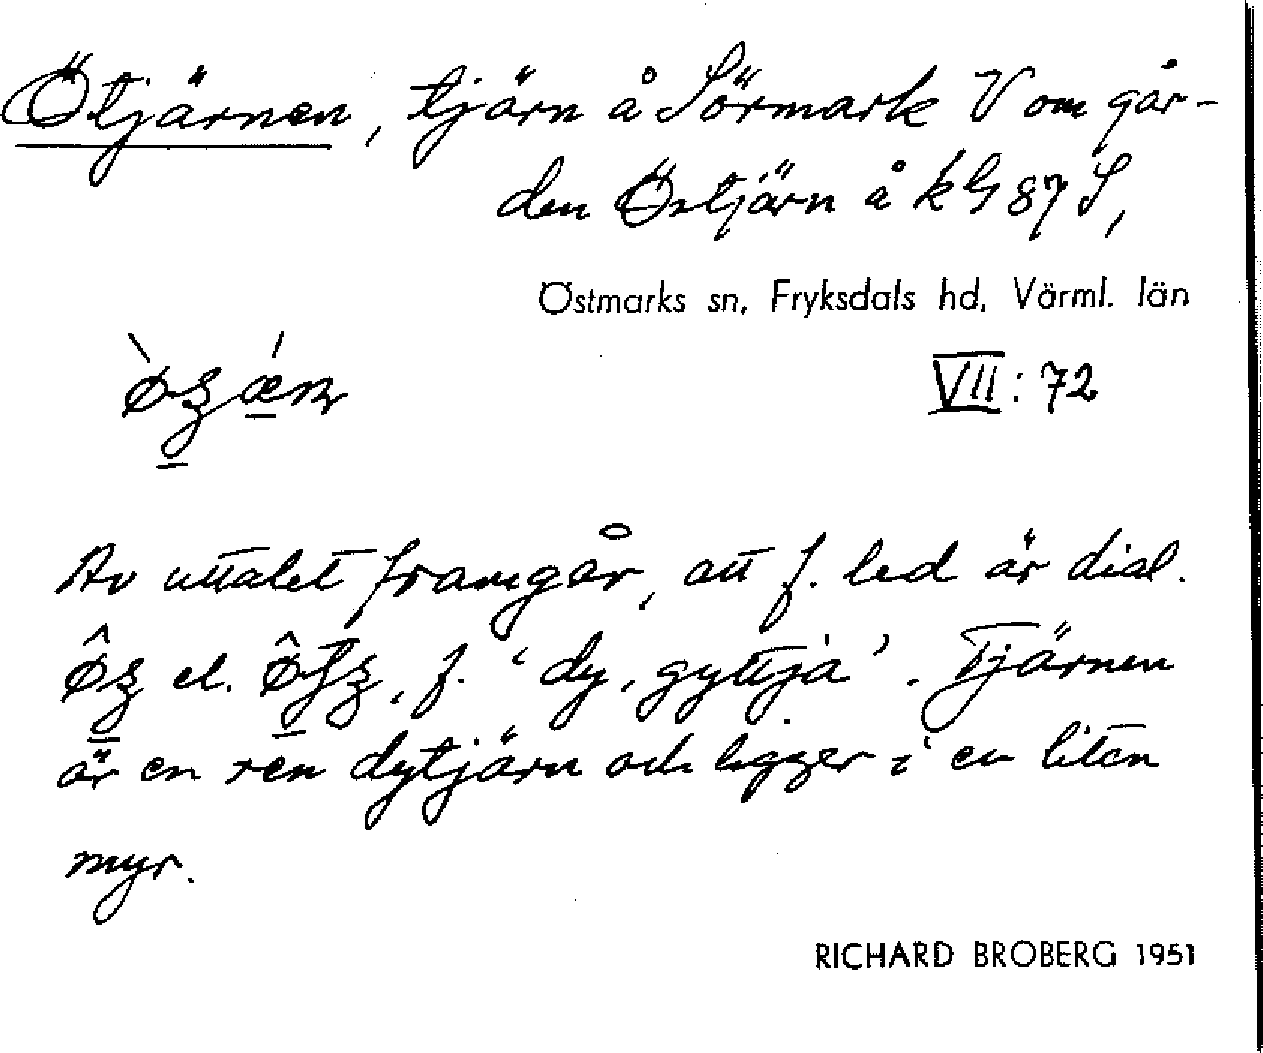 Ötjärnen, tjärn å Sörmark V om går-
den Östjärn å kG 87 S,
Östmarks sn, Fryksdals hd, Värml. län
VII: 72
Av uttalet framgår, att f. led är dial.
el. f. ‘dy, gyttja’. Tjärnen
är en ren dytjärn och ligger i en liten
myr.
RICHARD BROBERG 1951